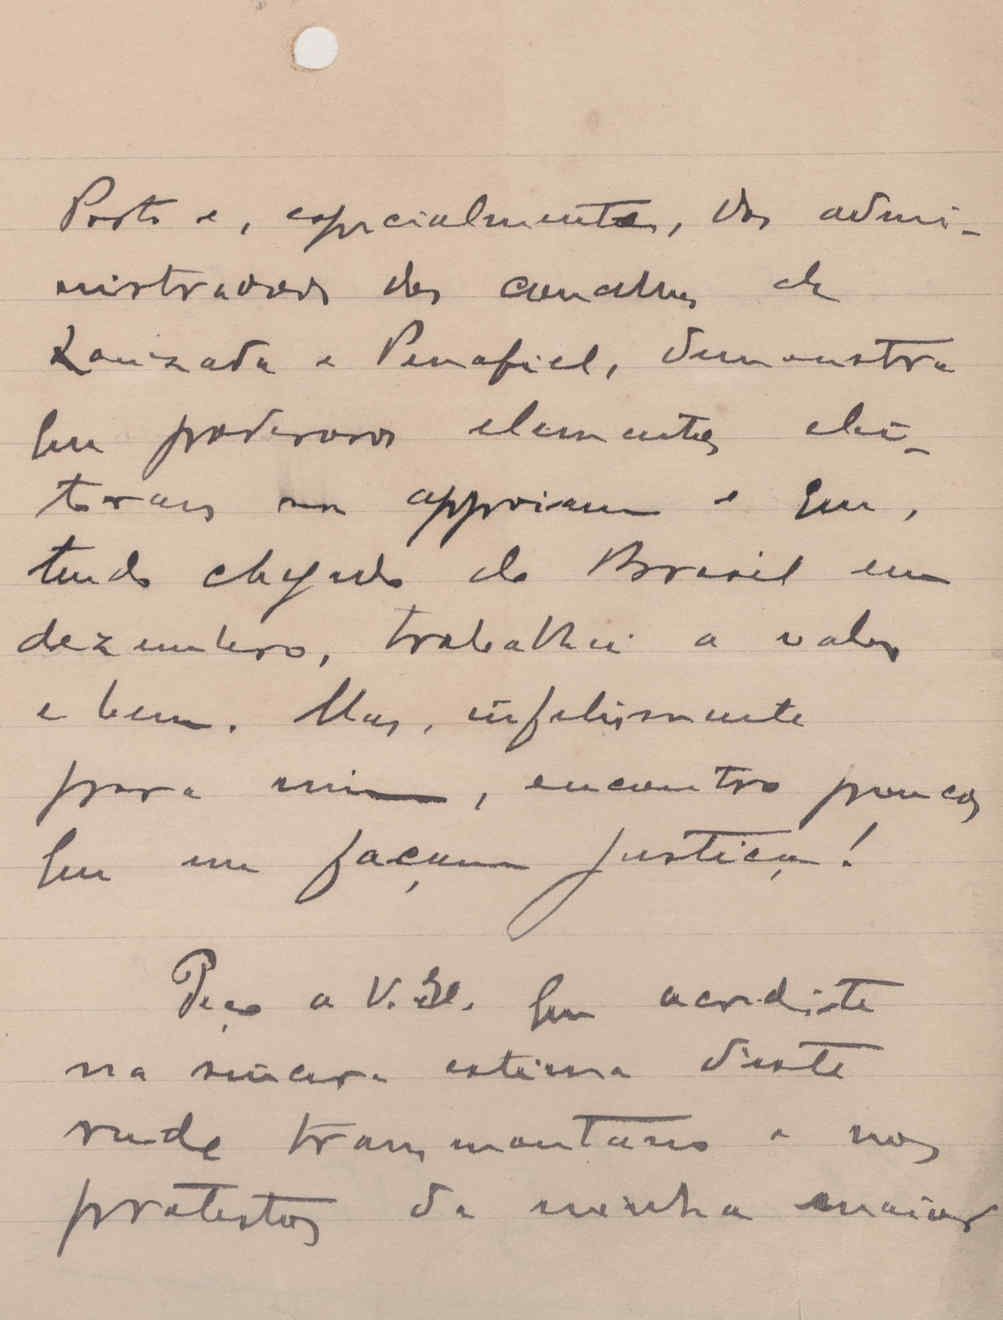 Porto e, especialmente, dos admi-
nistradores dos concelhos de
Louzada e Penafiel, demonstra
que poderosos elementos elei-
toraes me appoiam e que,
tendo chegado do Brasil em
dezembro, trabalhei a valer
e bem. Mas, infelizmente
para mim, encontro poucos
que me façam justiça!
Peço a V. Ex. que acredite
na sincera estima d'este
rude transmontano e nos
protestos da minha maior